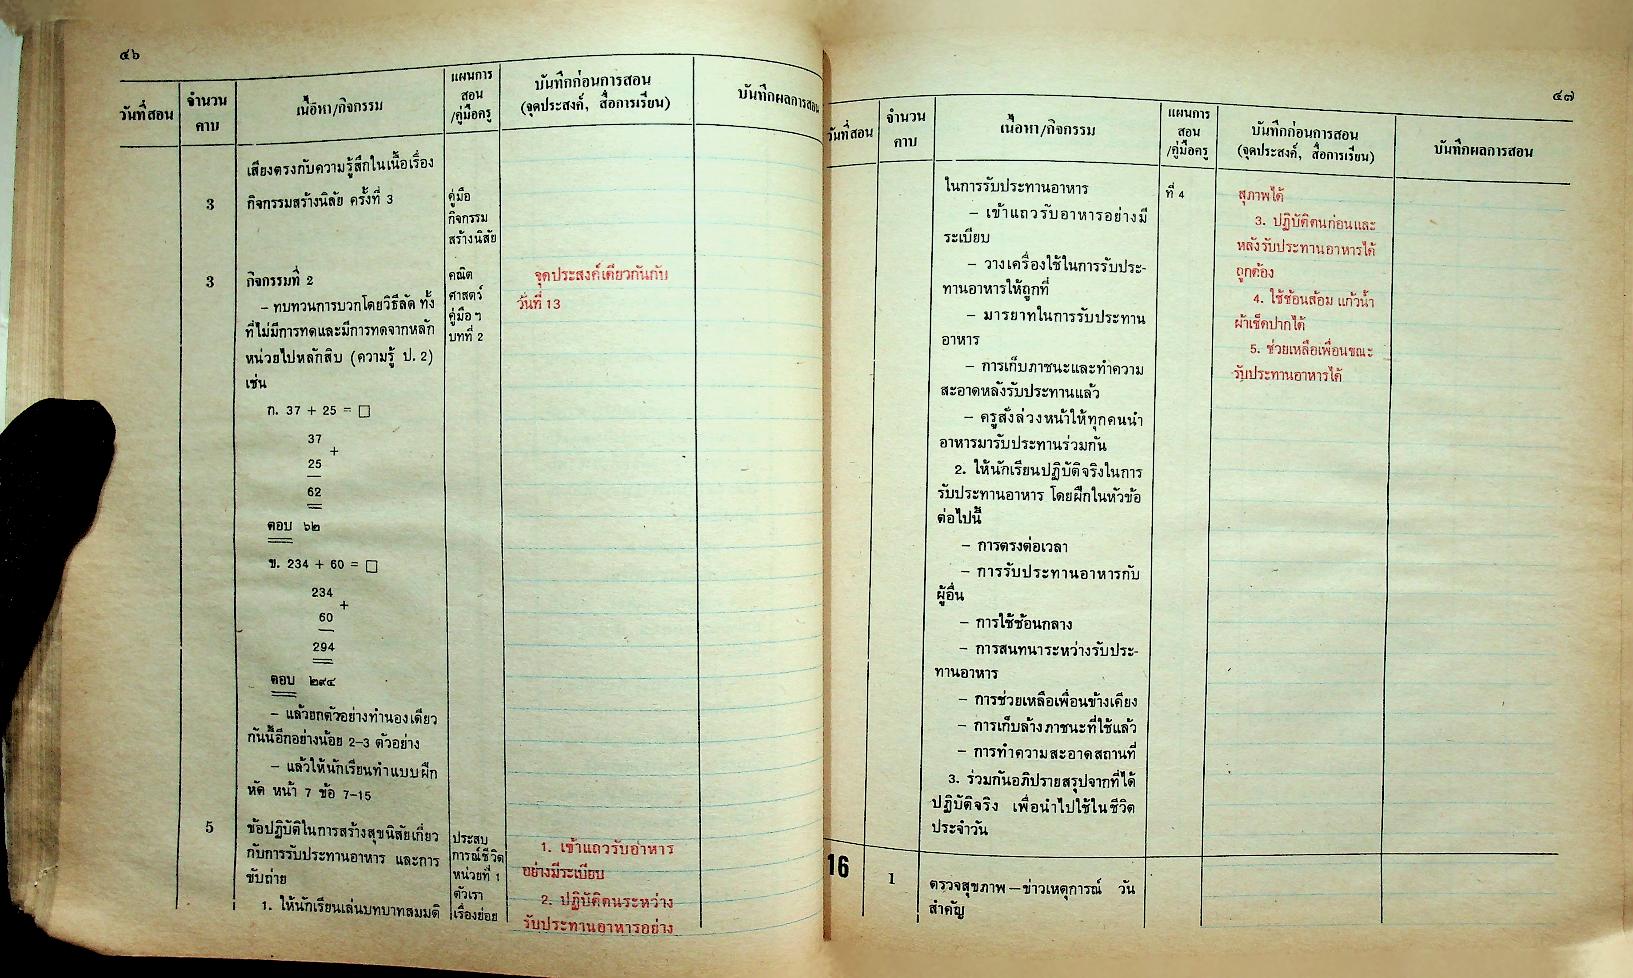 ๔๖
วันที่สอน
จำนวน
คาบ
เนื้อหา/กิจกรรม
แผนการ
สอน
/คู่มือครู
บันทึกก่อนการสอน
(จุดประสงค์, สื่อการเรียน)
บันทึกผลการสอน
เสียงตรงกับความรู้สึกในเนื้อเรื่อง
3
กิจกรรมสร้างนิสัย ครั้งที่ 3
คู่มือ
กิจกรรม
สร้างนิสัย
3
กิจกรรมที่ 2
– ทบทวนการบวกโดยวิธีลัด ทั้ง
ที่ไม่มีการทดและมีการทดจากหลัก
หน่วยไปหลักสิบ (ความรู้ ป. 2)
เช่น
ก. 37 + 25 = □
37
+
25
62
ตอบ ๖๒
ข. 234 + 60 = □
234
+
60
294
ตอบ ๒๙๔
– แล้วยกตัวอย่างทำนองเดียว
กันนี้อีกอย่างน้อย 2–3 ตัวอย่าง
– แล้วให้นักเรียนทำแบบฝึก
หัด หน้า 7 ข้อ 7–15
คณิต
ศาสตร์
คู่มือฯ
บทที่ 2
จุดประสงค์เดียวกันกับ
วันที่ 13
5
ข้อปฏิบัติในการสร้างสุขนิสัยเกี่ยว
กับการรับประทานอาหาร และการ
ขับถ่าย
1. ให้นักเรียนเล่นบทบาทสมมติ
ประสบ
การณ์ชีวิต
หน่วยที่ 1
ตัวเรา
เรื่องย่อย
1. เข้าแถวรับอาหาร
อย่างมีระเบียบ
2. ปฏิบัติตนระหว่าง
รับประทานอาหารอย่าง
๔๗
วันที่สอน
จำนวน
คาบ
เนื้อหา/กิจกรรม
แผนการ
สอน
/คู่มือครู
บันทึกก่อนการสอน
(จุดประสงค์, สื่อการเรียน)
บันทึกผลการสอน
ในการรับประทานอาหาร
– เข้าแถวรับอาหารอย่างมี
ระเบียบ
– วางเครื่องใช้ในการรับประ-
ทานอาหารให้ถูกที่
– มารยาทในการรับประทาน
อาหาร
– การเก็บภาชนะและทำความ
สะอาดหลังรับประทานแล้ว
– ครูสั่งล่วงหน้าให้ทุกคนนำ
อาหารมารับประทานร่วมกัน
2. ให้นักเรียนปฏิบัติจริงในการ
รับประทานอาหาร โดยฝึกในหัวข้อ
ต่อไปนี้
– การตรงต่อเวลา
– การรับประทานอาหารกับ
ผู้อื่น
– การใช้ช้อนกลาง
– การสนทนาระหว่างรับประ-
ทานอาหาร
– การช่วยเหลือเพื่อนข้างเคียง
– การเก็บล้างภาชนะที่ใช้แล้ว
– การทำความสะอาดสถานที่
3. ร่วมกันอภิปรายสรุปจากที่ได้
ปฏิบัติจริง เพื่อนำไปใช้ในชีวิต
ประจำวัน
ที่ 4
สุภาพได้
3. ปฏิบัติตนก่อนและ
หลังรับประทานอาหารได้
ถูกต้อง
4. ใช้ช้อนส้อม แก้วน้ำ
ผ้าเช็ดปากได้
5. ช่วยเหลือเพื่อนขณะ
รับประทานอาหารได้
16
1
ตรวจสุขภาพ–ข่าวเหตุการณ์ วัน
สำคัญ